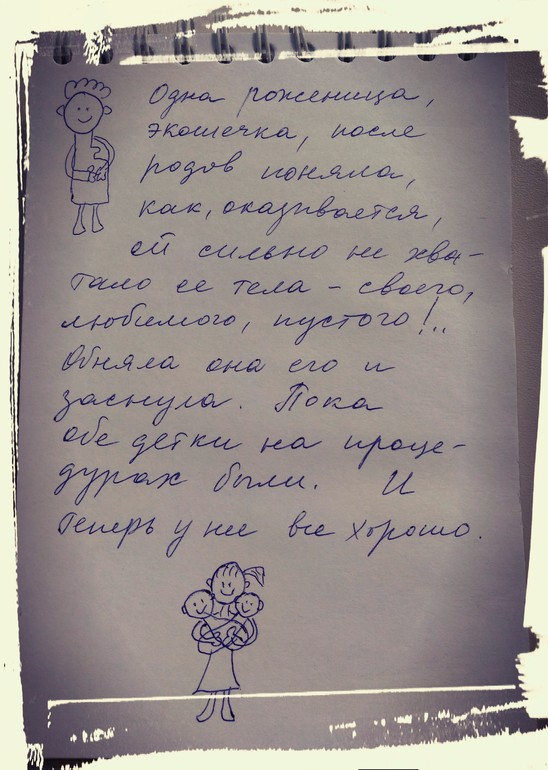 Одна роженица,
экошечка, после
родов поняла,
как, оказывается,
ей сильно не хва-
тало ее тела - своего,
любимого, пустого!..
Обняла она его и
заснула. Пока
обе детки на проце-
дурах были. И
теперь у нее все хорошо.